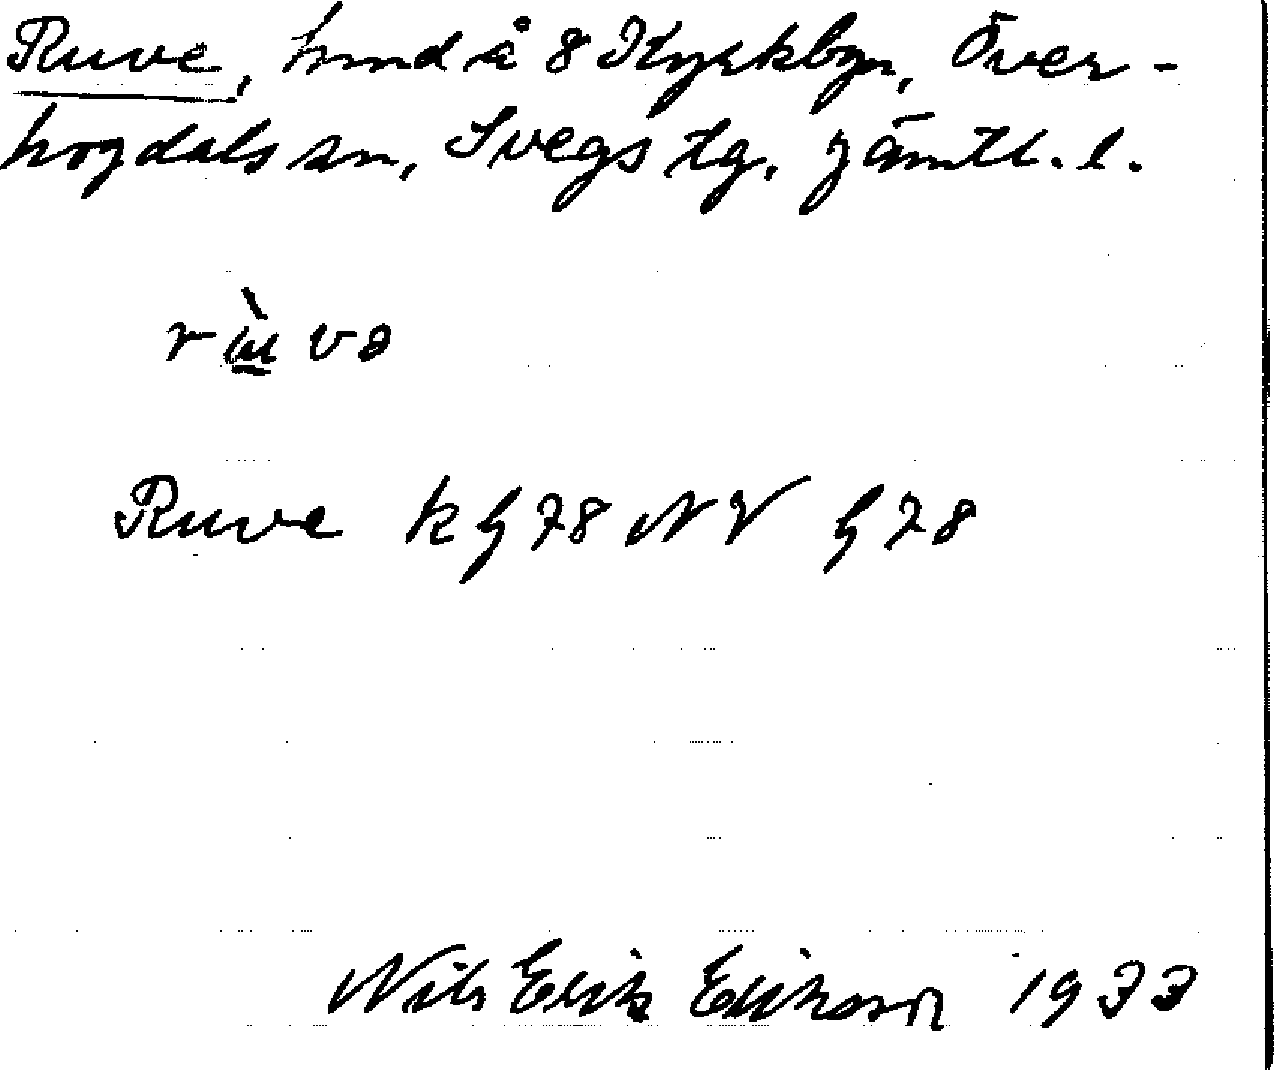 Ruve, hmd å 8 Kyrkbyn, Över-
hogdals sn, Svegs tg. Jämtl. l.
rùvə
Ruve kg 78 NV g 78
Nils Erik Erikson 1933